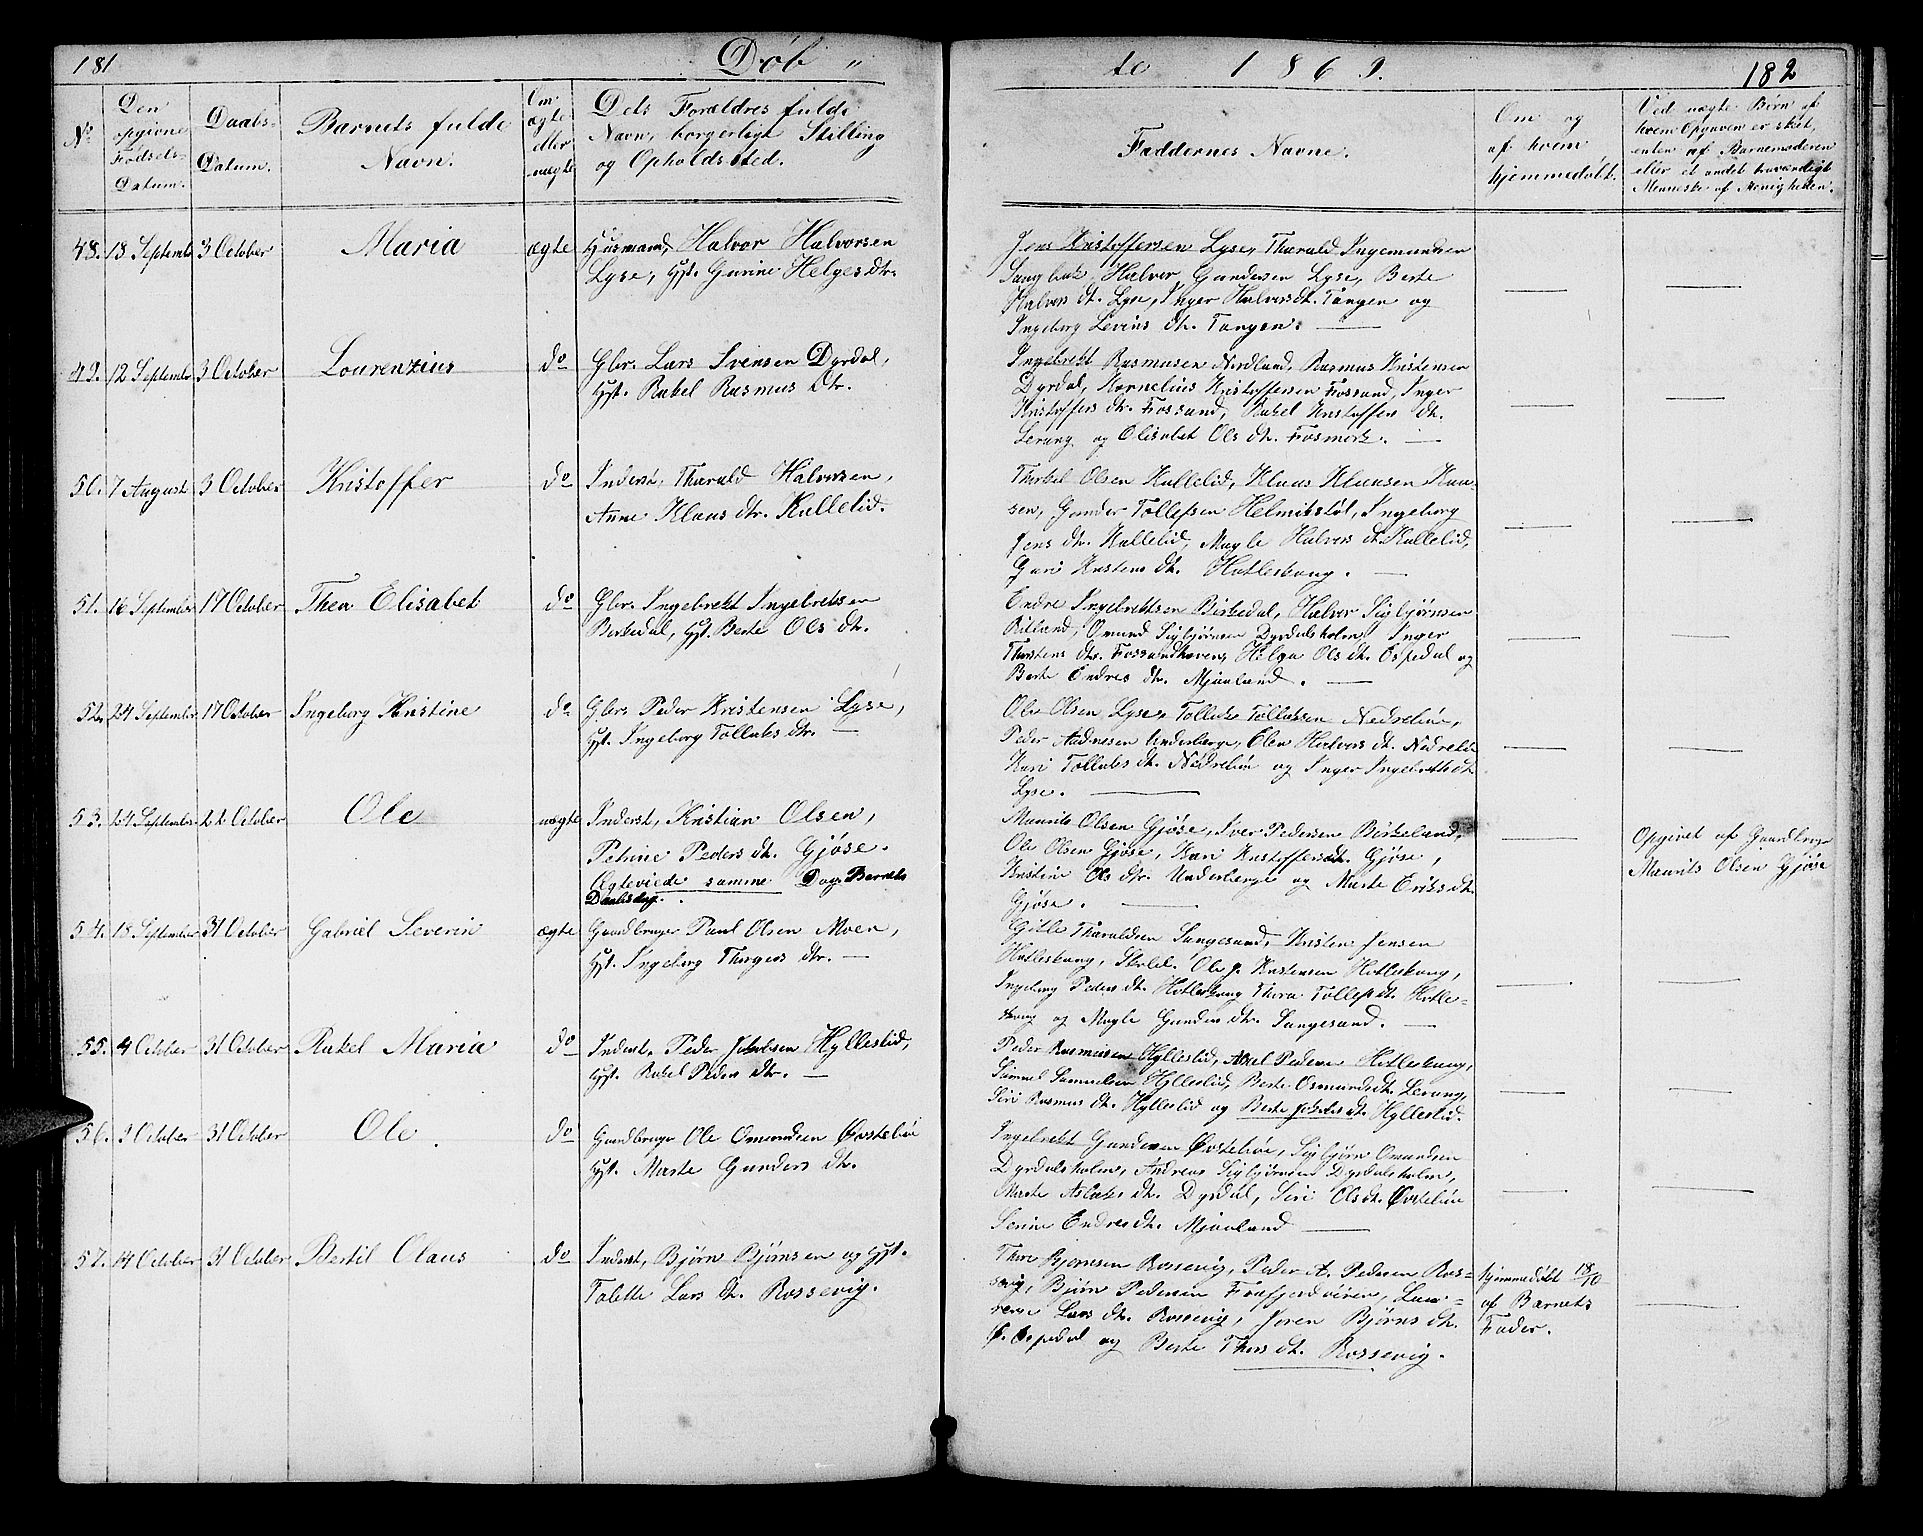 181
Døb "
te 1869.
182
No
Den opgivne Fødsels-Datum.
Daabs-Datum.
Barnets fulde Navn.
Om ægte eller uægte
Dets Forældres fulde Navn, borgerligt Stilling og Opholdssted.
Faddernes Navne.
Om og af hvem hjemmedøbt.
Ved uægte Børn af hvem Opgaven er skeet, enten af Barnemoderen eller et andet troværdigt Menneske af Menigheden.
48. 18 Septembr 3 October Maria ægte Husmand, Halvor Halvorsen
Lyse, Hst. Gurine Helgesdtr.
Jens Kristoffersen Lyse, Tharald Ingemundsen
Sangbak, Halvor Gundersen Lyse, Berte
Halvors dt. Lyse, Inger Halvorsdt. Tangen og
Ingeborg Levins dtr. Tangen.
49. 12 Septembr 3 October Lourenzius do Gbr. Lars Svensen Dyrdal,
Hst. Rakel Rasmus dtr.
Ingebrekt Rasmusen Nordland, Rasmus Kristensen
Dyrdal, Kornelius Kristoffersen Fossand, Inger
Kristoffers dtr. Fossand, Rakel Kristoffers dt.
Lerang og Olisabet Ols dtr. Fosmork.
50. 7 August 3 October Kristoffer do Inderst, Tharald Halvorsen,
Anne Klaus dtr. Kallelid.
Thorkel Olsen Kallelid, Klaus Klausen
Gunder Tollefsen Helmikstøl, Ingeborg
Jens dt. Kallelid, Magle Halvors dt. Kallelid,
Guri Kristens dt. Hatleskong.
51. 16 September 17 October Thea Elisabet do Gbr. Ingebrekt Ingebretsen
Birkedal, Hst. Berte Ols dtr.
Endre Ingebrektsen Birkedal, Halvor Sigbjørnsen
Omund Sigbjørnsen Dyrdalsholm, Inger
Thorstens dtr. Helga Ols dt. Espedal og
Berte Endres dt. Mjaaland.
52. 24 September 17 October Ingeborg Kristine do Gbr. Peder Kristensen Lyse,
Hst. Ingeborg Tollaksdtr.
Ole Olsen Lyse, Tollak Tollaksen Nedrebøe,
Peder Andresen Underberge, Elen Halvors dt.
Kari Tollaks dt. Nedrebøe og Inger Ingebretsdt.
Lyse.
53. 24 September 22 October Ole uægte Inderst, Kristian Olsen,
Petrine Peders dt. Gjøse.
Ægteviede samme Dag Barnets
Daabsdag.
Maurits Olsen Gjøse, Iver Pedersen Birkeland,
Ole Olsen Gjøse, Kari Kristoffersdt. Gjøse,
Kristine Ols dtr. Underberge og Marte Eriks dt.
Gjøse.
Opgivet af Gaardbrug
Maurits Olsen Gjøse
54. 18 September 31 October Gabriel Severin ægte Gaardbruger Paul Olsen Moen,
Hst. Ingeborg Thorgers dtr.
Gitle Tharaldsen Sangesand, Kristen Jensen
Hatleskong, Skolel. Ole J. Kristensen Hatleskong,
Ingeborg Peders dt. Hatleskong Thora Tollefsdt. Hatle-
skong og Magle Gunders dtr. Sangesand.
55. 4 October 31 October Rakel Maria do Inderst, Peder Jakobsen Hylleslid,
Hst. Rakel Peders dtr.
Peder Rasmusen Hylleslid, Aksel Pedersen Hatleskong,
Samuel Samuelsen Hylleslid, Berte Osmundsdt. Lerang,
Siri Rasmus dt. Hylleslid og Berte Jakobsdt. Hylleslid.
56. 9 October 31 October Ole. do Gaardbruger Ole Omundsen Øvstebøe
Hst. Marte Gunders dtr.
Ingebrekt Gundersen Øvstebøe, Sigbjørn Omundsen
Dyrdalsholm, Andreas Sigbjørnsen Dyrdalsholm,
Marte Aslaks dt. Dyrdal, Siri Olsdt. Øvstebøe
Serine Endresdt. Mjaaland
57. 14 October 31 October Bertil Olaus do Inderst, Bjørn Bjørnsen og Hst.
Talette Lars dt. Rossevig.
Thore Bjørnsen Rossevig, Peder A. Pedersen Ros-
sevig, Bjørn Pedersen Fraafjord
Lars dt. Rossevig, Joren Bjørns dt.
Espedal og Berte Thors dt. Rossevig.
hjemmedøbt 18/10
af Barnets
Fader.